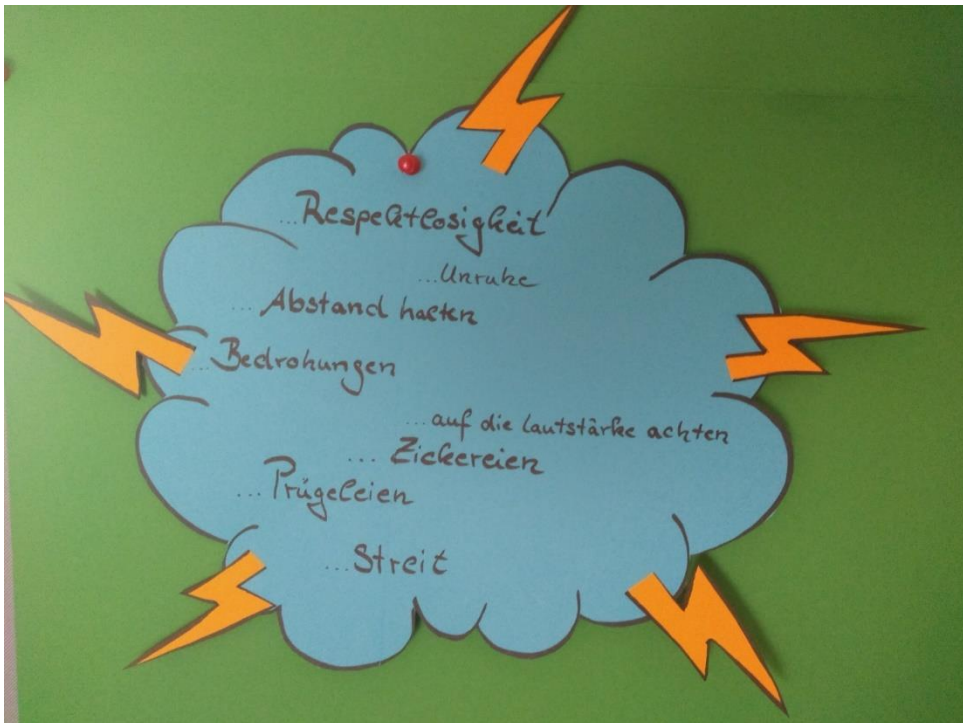 ...Respektlosigkeit
...Unruhe
...Abstand halten
...Bedrohungen
...auf die Lautstärke achten
... Zickereien
...Prügeleien
...Streit